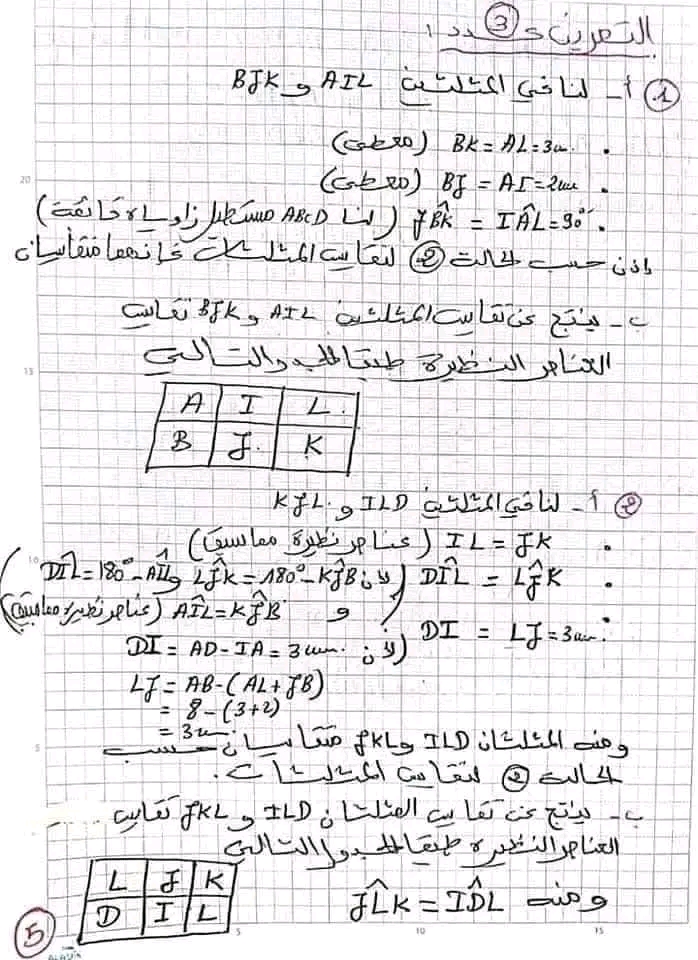 التمرين عدد 3
1) أ- لنا في المثلثين AIL و BJK
• BK = AL = 3cm (معطى)
• BJ = AI = 2cm (معطى)
• JB̂K = IÂL = 90° (لنا ABCD مستطيل زواياه قائمة)
إذن حسب الحالة 2 لتقايس المثلثات فإنهما متقايسان
ب- ينتج عن تقايس المثلثين AIL و BJK تقايس
العناصر النظيرة طبقا للجدول التالي
A I L
B J K
2) أ- لنا في المثلثين ILD و KJL
• IL = JK (عناصر نظيرة متقايسة)
• DÎL = LĴK (لأن LĴK = 180° - KĴB و DÎL = 180° - AÎL
و AÎL = KĴB (عناصر نظيرة متقايسة))
• DI = LJ = 3cm
(لأن DI = AD - IA = 3cm
LJ = AB - (AL + JB)
= 8 - (3+2)
= 3cm
ومنه المثلثان ILD و JKL متقايسان حسب
الحالة 2 لتقايس المثلثات.
ب- ينتج عن تقايس المثلثان ILD و JKL تقايس
العناصر النظيرة طبقا للجدول التالي
L J K
D I L
ومنه JL̂K = ID̂L
5
20
15
10
5
5
10
15